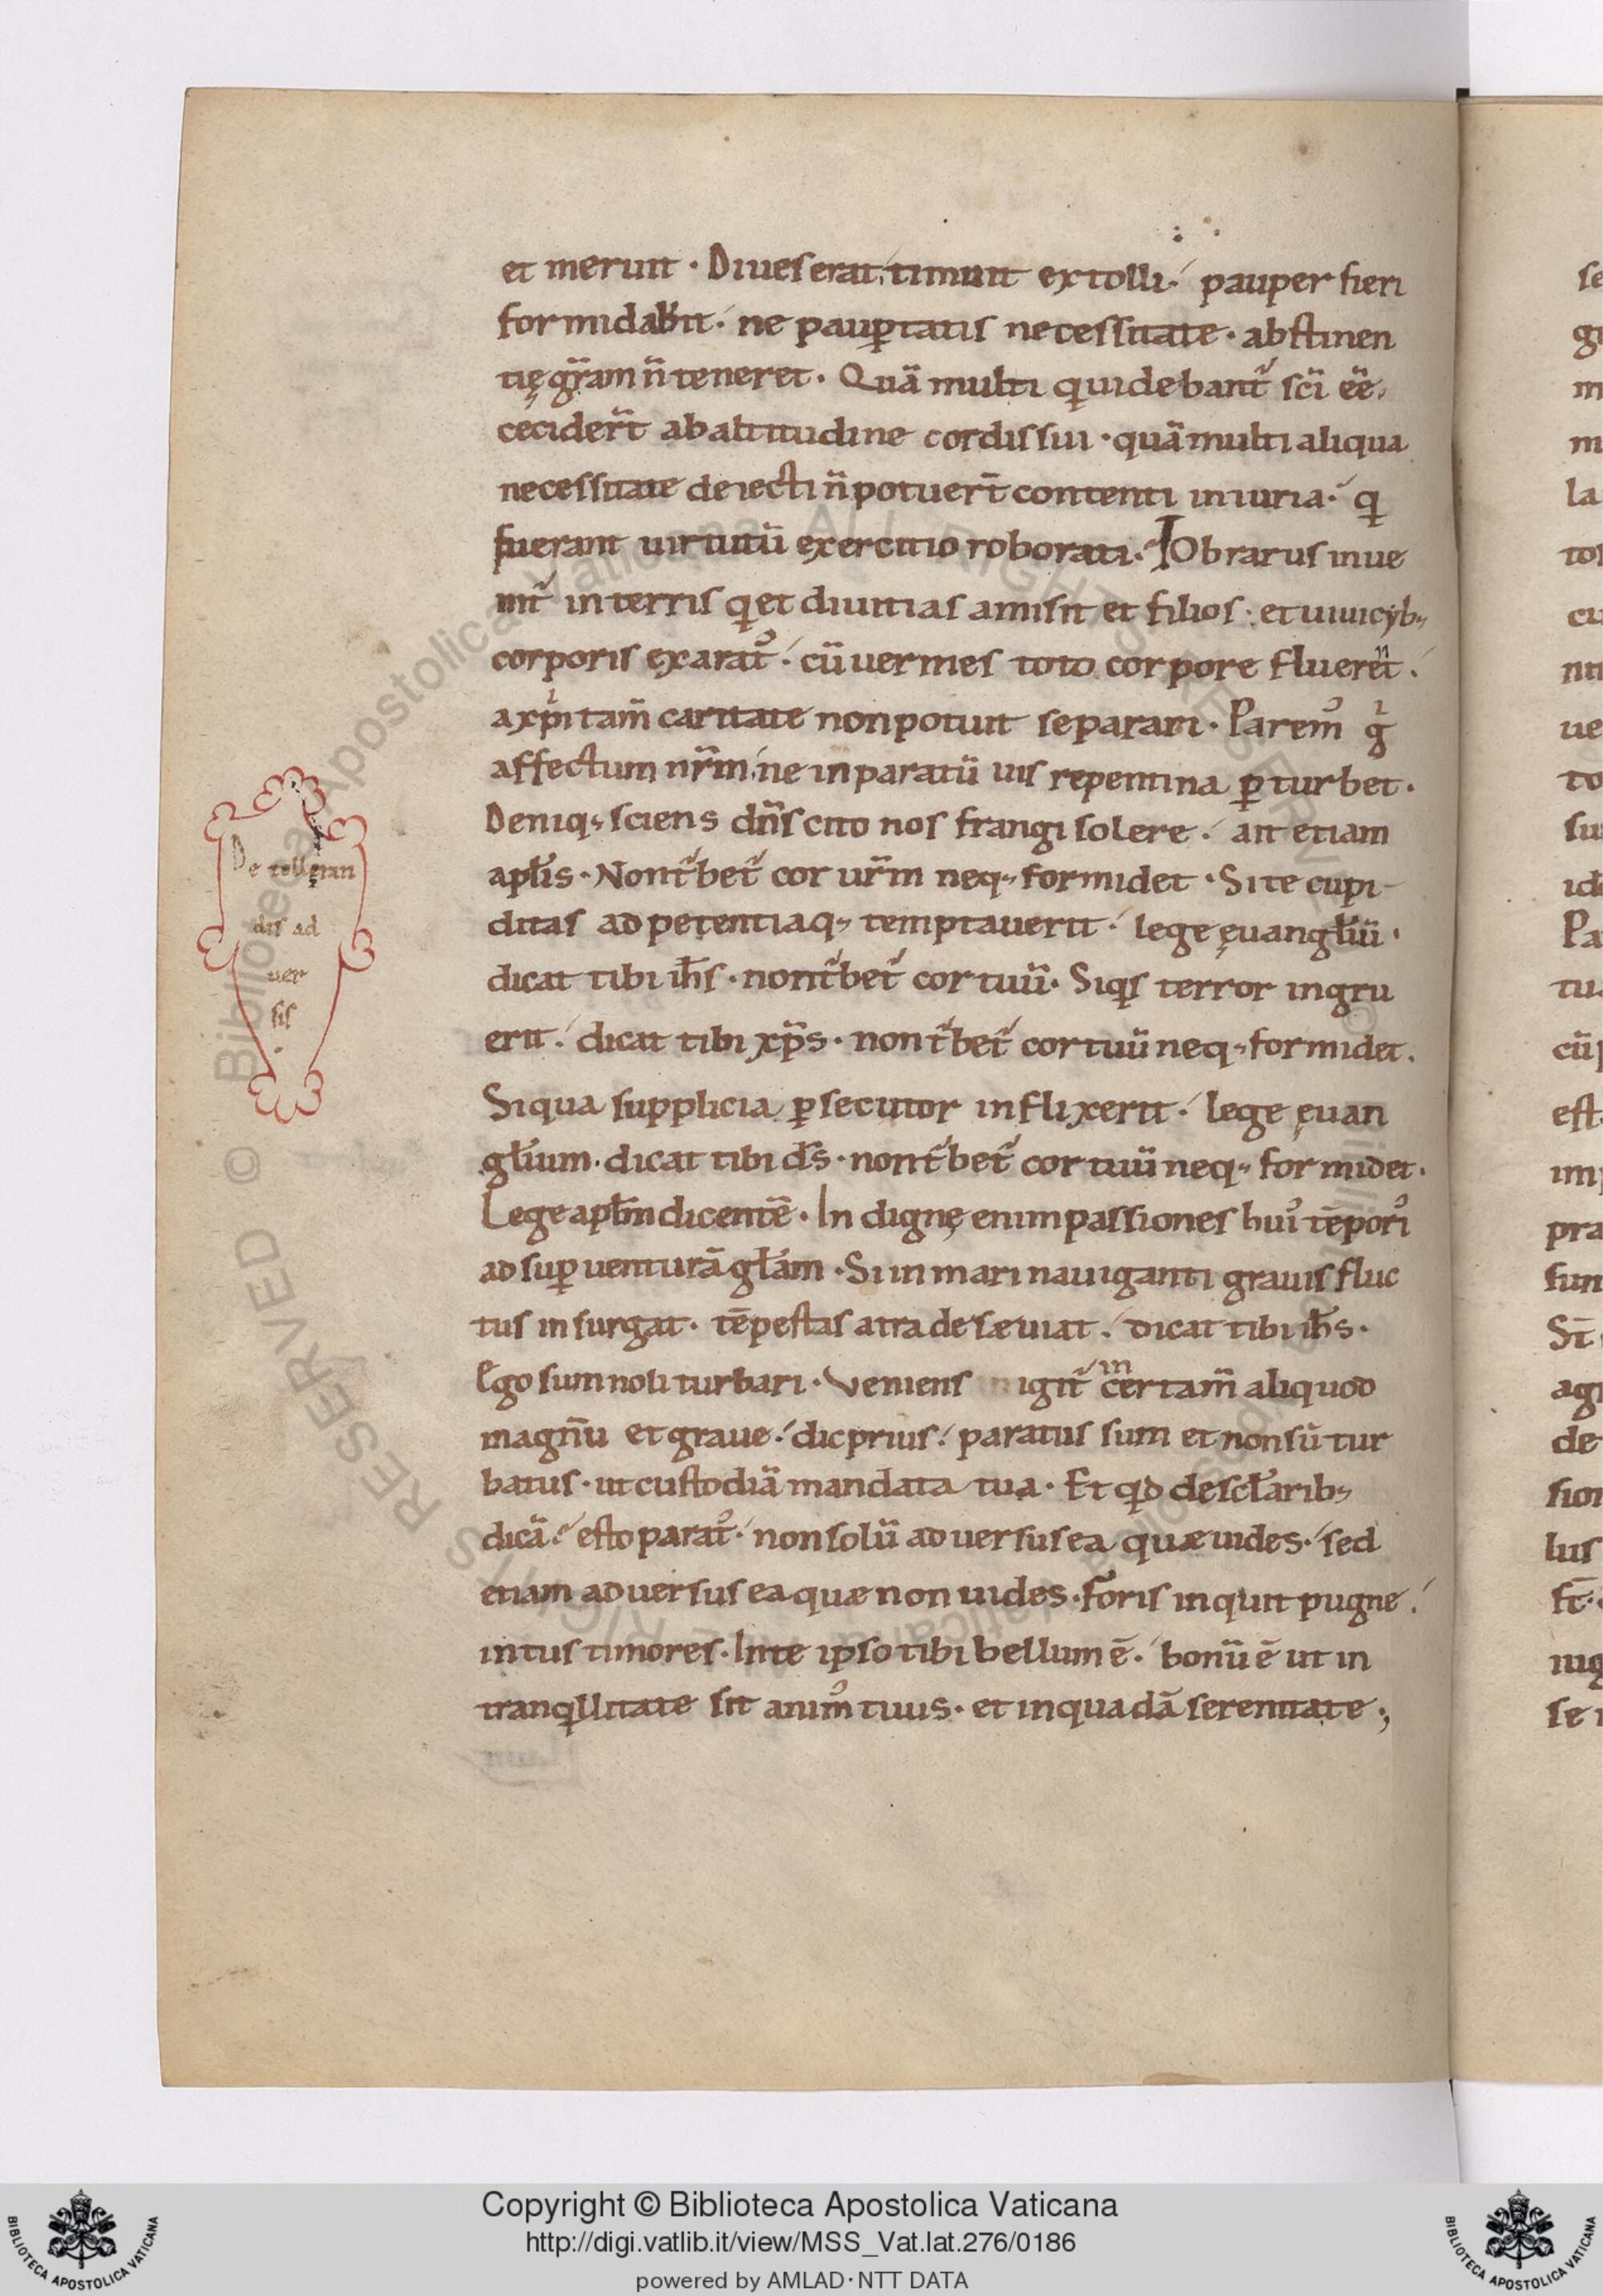 et meruit · Diues erat, timuit extolli · pauper fieri
formidabit · ne paup̱tatis necessitate · abstinen
tię gr̄am n̄ teneret · Quā multi q uidebant᷑ sc̄i eē,
cecider̄t ab altitudine cordis sui · quā multi aliqua
necessitate deiecti n̄ potuer̄t contenti iniuria · q
fuerant uirtutū exercitio roborati · IOb rarus inue
nit᷑ in terris q et diuitias amisit et filios · et uiuicyb;
corporis exarat᷒ · cū uermes toto corpore fluerēt ·
a xp̄i tam̄ caritate non potuit separari · Parem᷒ gͥ
affectum nr̄m, ne inparatū uis repentina p̱turbet ·
Deniq; sciens dn̄s cito nos frangi solere · ait etiam
apłis · Non t᷑bet᷑ cor ur̄m neq; formidet · Si te cupi-
ditas adpetentiaq; temptauerit · lege ęuangłiū ·
dicat tibi ih̄s · non t᷑bet᷑ cor tuū · Siqͥs terror ingru
erit · dicat tibi xp̄s · non t᷑bet᷑ cor tuū neq; formidet ·
Siqua supplicia p̱secutor inflixerit · lege ęuan
głium · dicat tibi d̄s · non t᷑bet᷑ cor tuū neq; formidet ·
Lege apłm dicentē · Indignę enim passiones hui᷒ tēpori᷒
ad sup̱uenturā głam · Si in mari nauiganti grauis fluc
tus insurgat · tēpestas atra desæuiat · dicat tibi ih̄s ·
Ego sum noli turbari · Veniens igit᷑ in certam̄ aliquod
magnū et graue · dic prius · paratus sum et non sū tur
batus · ut custodiā mandata tua · Et qd de scłarib;
dicā · esto parat᷒ · non solū aduersus ea quæ uides · sed
etiam aduersus ea quæ non uides · Foris inquit pugne ·
intus timores · In te ipso tibi bellum ē · bonū ē ut in
tranqͥllitate sit anim᷒ tuus · et in quadā serenitate ·,
De tollęran
dis ad
uer
sis
·
Copyright © Biblioteca Apostolica Vaticana
http://digi.vatlib.it/view/MSS_Vat.lat.276/0186
powered by AMLAD·NTT DATA
BIBLIOTECA APOSTOLICA VATICANA
BIBLIOTECA APOSTOLICA VATICANA